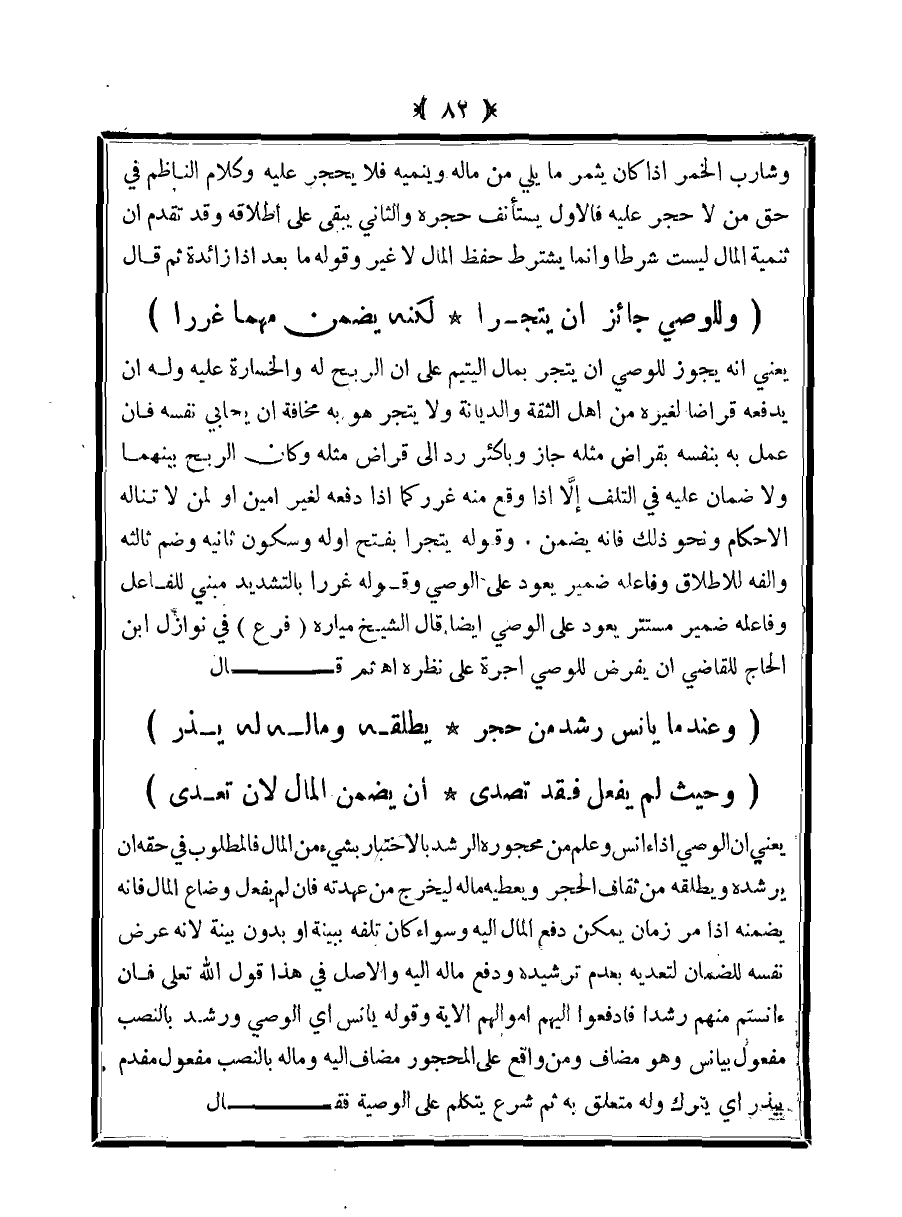 ﴿ ٨٢ ﴾
وشارب الخمر اذا كان يثمر ما يلي من ماله وينميه فلا يحجر عليه وكلام الناظم في
حق من لا حجر عليه فالاول يستأنف حجره والثاني يبقى على أطلاقه وقد تقدم ان
ثنمية المال ليست شرطا وانما يشترط حفظ المال لا غير وقوله ما بعد اذا زائدة ثم قال
( وللوصي جائز ان يتجرا * لكنه يضمن مهما غررا )
يعني انه يجوز للوصي ان يتجر بمال اليتيم على ان الربح له والخسارة عليه وله ان
يدفعه قراضا لغيره من اهل الثقة والديانة ولا يتجر هو به مخافة ان يحابي نفسه فان
عمل به بنفسه بقراض مثله جاز وباكثر رد الى قراض مثله وكان الربح بينهما
ولا ضمان عليه في التلف إلَّا اذا وقع منه غرر كما اذا دفعه لغير امين او لمن لا تناله
الاحكام ونحو ذلك فانه يضمن . وقوله يتجرا بفتح اوله وسكون ثانيه وضم ثالثه
والفه للاطلاق وفاعله ضمير يعود على الوصي وقوله غررا بالتشديد مبني للفاعل
وفاعله ضمير مستتر يعود على الوصي ايضا قال الشيخ ميارة ( فرع ) في نوازل ابن
الحاج للقاضي ان يفرض للوصي اجرة على نظره اه ثم قـــــال
( وعندما يانس رشد من حجر * يطلقه وماله له يذر )
( وحيث لم يفعل فقد تصدى * أن يضمن المال لان تعدى )
يعني ان الوصي اذا ءانس وعلم من محجوره الرشد بالاختبار بشيء من المال فالمطلوب في حقه ان
يرشده ويطلقه من ثقاف الحجر ويعطيه ماله ليخرج من عهدته فان لم يفعل وضاع المال فانه
يضمنه اذا مر زمان يمكن دفع المال اليه وسواء كان تلفه ببينة او بدون بينة لانه عرض
نفسه للضمان لتعديه بعدم ترشيده ودفع ماله اليه والاصل في هذا قول الله تعلى فان
ءانستم منهم رشدا فادفعوا اليهم اموالهم الاية وقوله يانس اي الوصي ورشد بالنصب
مفعول بيانس وهو مضاف ومن واقع على المحجور مضاف اليه وماله بالنصب مفعول مقدم
بيذر اي يترك وله متعلق به ثم شرع يتكلم على الوصية فقـــــال